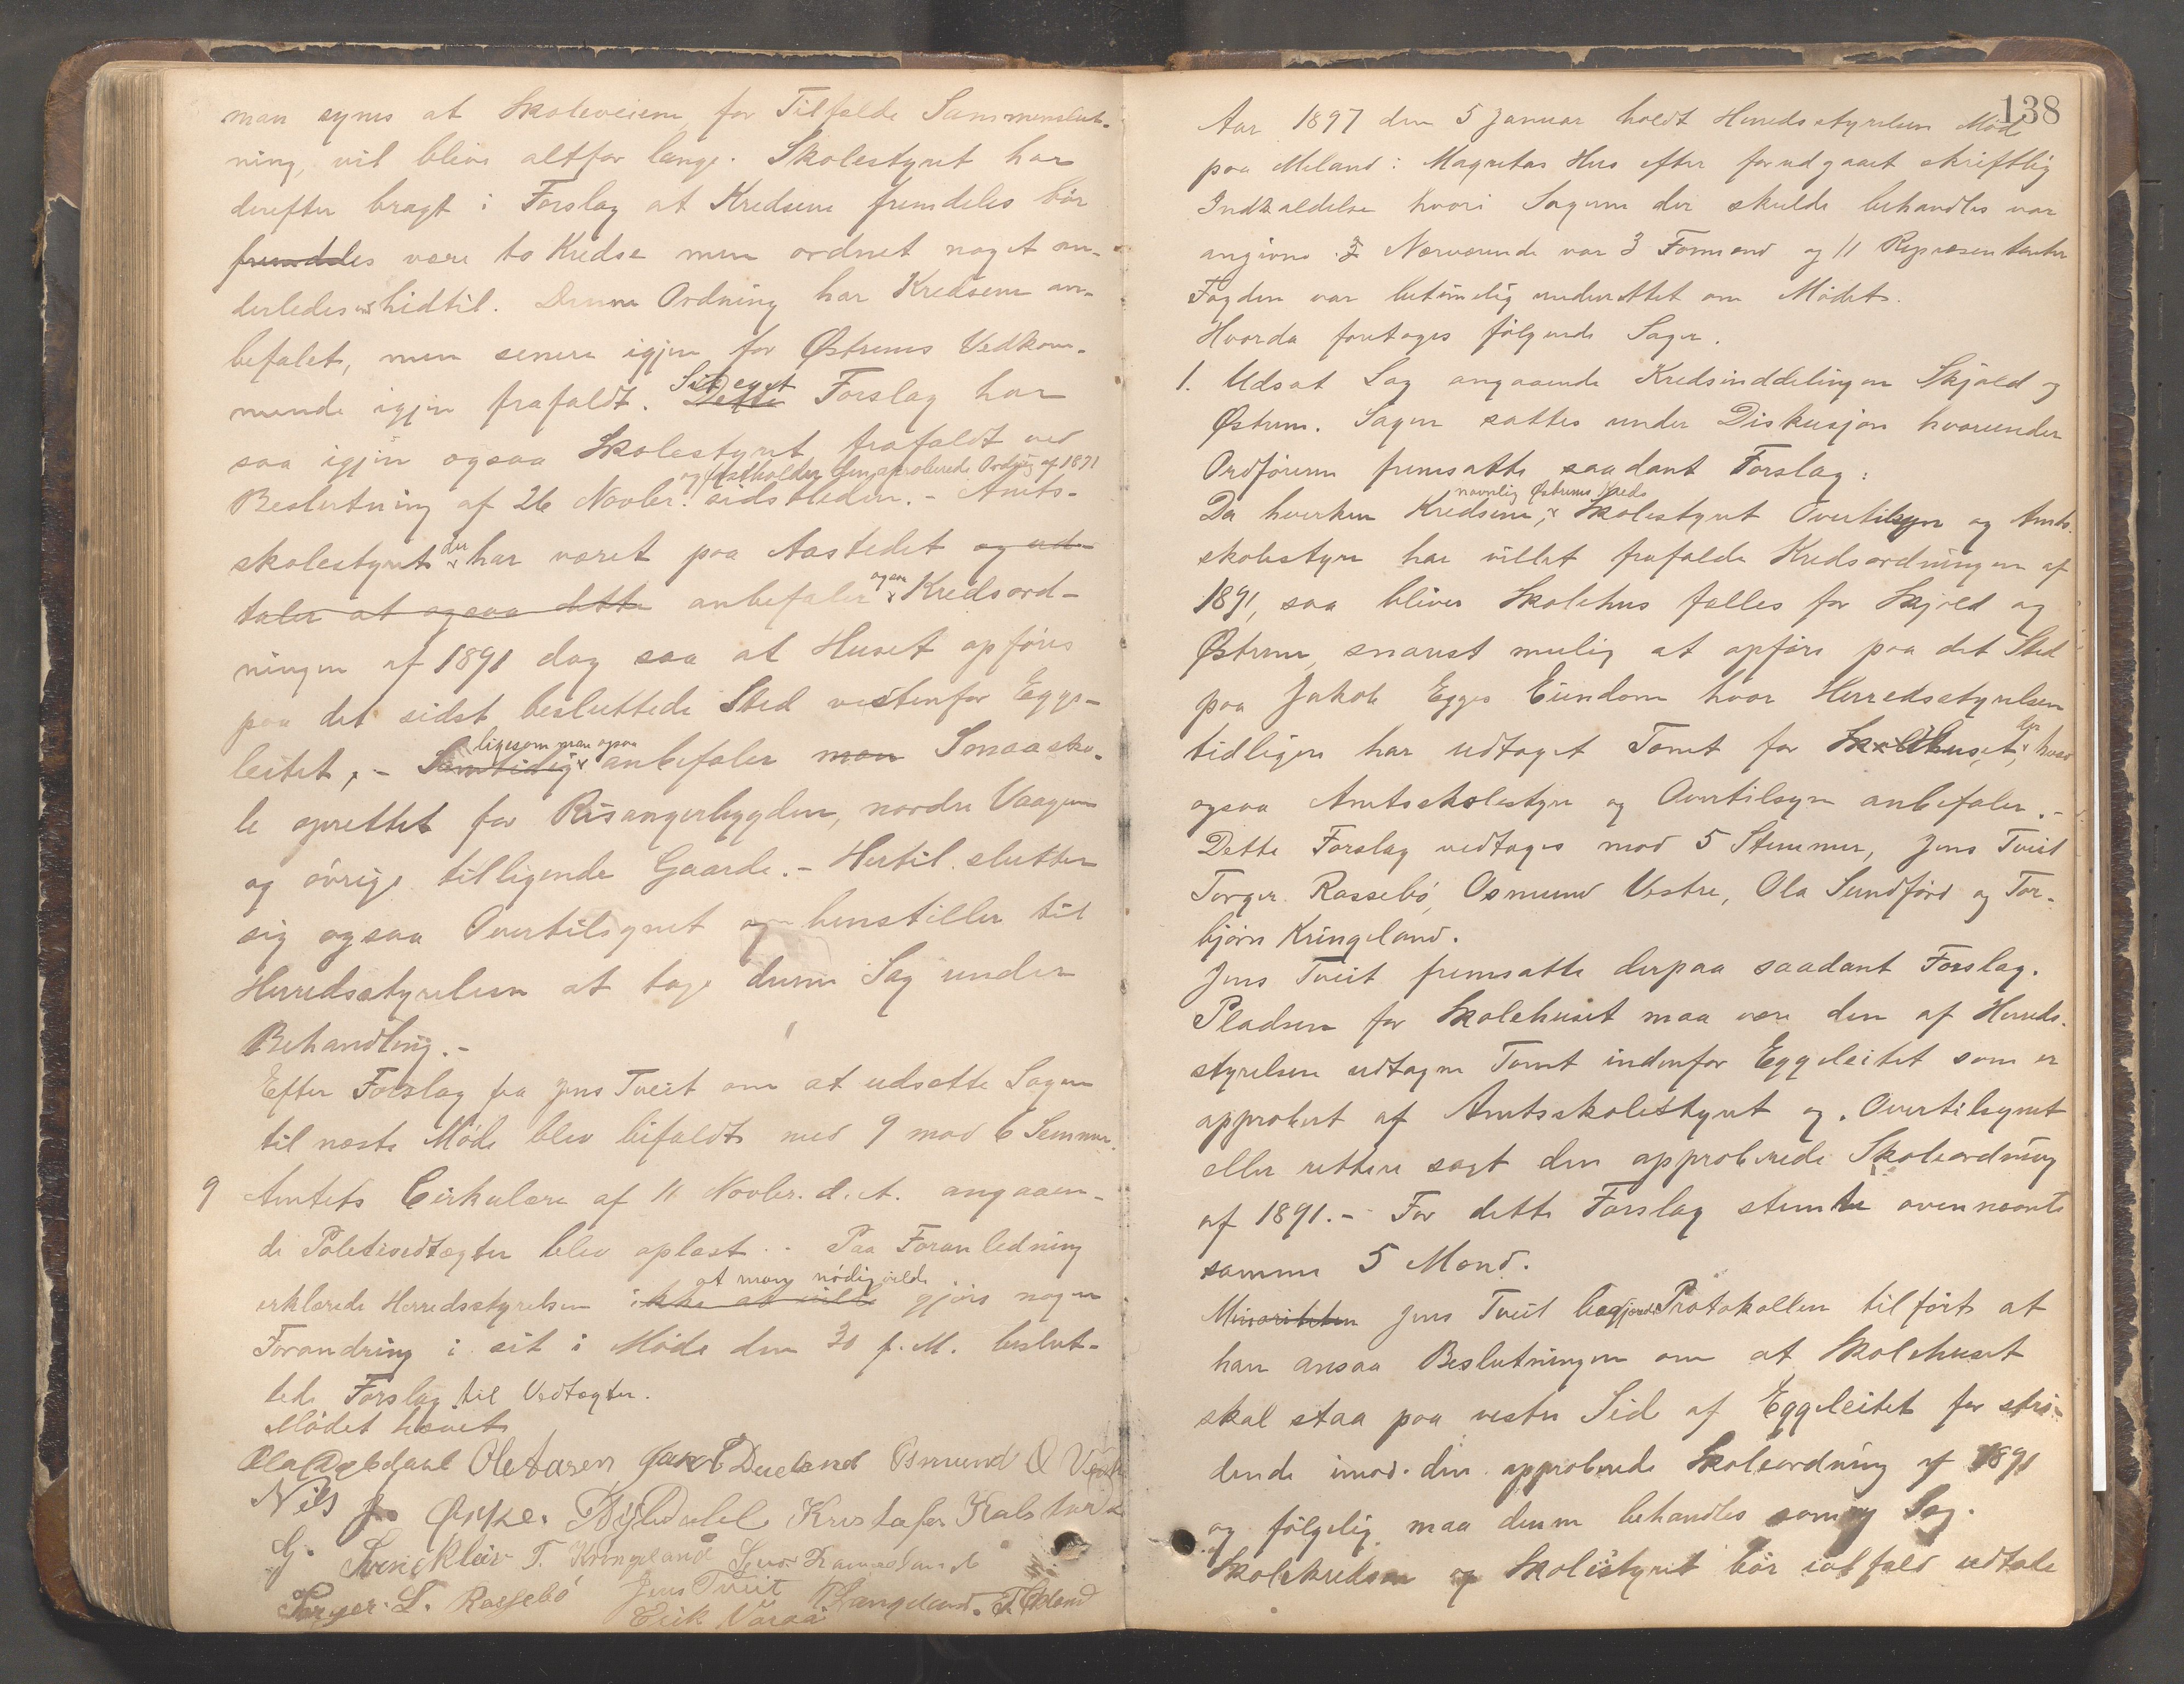 man synes at Skoleveiene for Tilfælde Sammenslut-
ning, vil blive altfor lange. Skolestyret har
derefter bragt i Forslag at Kredsene fremdeles bör
fremdeles være to Kredse men ordnet noget an-
derledes end hidtil. Denne Ordning har Kredsene an-
befalet, men senere igjen for Østrems Vedkom-
mende igjen frafaldt. Dette Sit eget Forslag har
saa igjen ogsaa Skolestyret frafaldt ved
og fastholder den aproberede Ordning af 1891
Beslutning af 26 Novbr. sidstleden. - Amts-
skolestyret der har været paa Aastedet og ud-
taler at ogsaa dette anbefaler ogsaa Kredsord-
ningen af 1891 dog saa at Huset opföres
paa det sidst besluttede Sted vestenfor Egge-
leitet, - Samtidig ligesom man ogsaa anbefaler man Smaasko-
le oprettet for Risangerbygden, nordre Vaagen
og övrige tilligende Gaarde. - Hertil slutter
sig ogsaa Overtilsynet og henstiller til
Herredsstyrelsen at tage denne Sag under
Behandling. -
Efter Forslag fra Jens Tveit om at udsætte Sagen
til næste Möde blev bifaldt med 9 mod 6 Stemmer.
9 Amtets Cirkulære af 11 Novbr. d. A. angaaen-
de Politivedtægter blev oplæst. - Paa Foranledning
erklærede Herredsstyrelsen ikke at vilde at man nödig vilde gjöre nogen
Forandring i sit i Möde den 30 f. M. beslut-
tede Forslag til Vedtægter.
Mödet hævet
Ole Aasen Osmund O Vestre
Nils J. Kristofer Kalstveit
G. T. Kringeland
Torger L. Rossebö Jens Tveit T. Økland
Erik Våraa
138
Aar 1897 den 5 Januar holdt Herredsstyrelsen Möde
paa Meland i Magretas Hus efter forudgaaet skriftlig
Indkaldelse hvori Sagerne der skulde behandles var
angivne. Nærværende var 3 Formænd og 11 Repræsentanter
Fogden var betimelig underrettet om Mödet.
Hvorda foretoges fölgende Sager.
1. Udsat Sag angaaende Kredsinddelingen Skjold og
Østrem. Sagen sattes under Diskusjon hvorunder
Ordföreren fremsatte saadant Forslag:
Da hverken Kredsene, navnlig Østrems Kreds Skolestyret Overtilsyn og Amts-
skolestyre har villet frafalde Kredsordningen af
1891, saa bliver Skolehus fælles for Skjold og
Østrem snarest mulig at opföre paa det Sted
paa Jakob Egges Eiendom hvor Herredsstyrelsen
tidligere har udtaget Tomt for Skolehuset, hvad
ogsaa Amtsskolestyre og Overtilsyn anbefaler. -
Dette Forslag vedtoges mod 5 Stemmer, Jens Tveit
Torger Rossebö, Osmund Vestre, Ola Sundförd og Tor-
björn Kringeland.
Jens Tveit fremsatte derpaa saadant Forslag.
Pladsen for Skolehuset maa være den af Herreds-
styrelsen udtagne Tomt indenfor Eggeleitet som er
approbert af Amtsskolestyret og Overtilsynet
eller rettere sagt den approberede Skoleordning
af 1891. - For dette Forslag stemte ovennævnte
samme 5 Mænd.
Minoriteten Jens Tveit begjærede Protokollen tilfört at
han ansaa Beslutningen om at Skolehuset
skal staa paa vestre Side af Eggeleitet for stri-
dende imod den approberede Skoleordning af 1891
og fölgelig maa denne behandles som ny Sag.
Skolekredsen og Skolestyret bör ialfald udtale